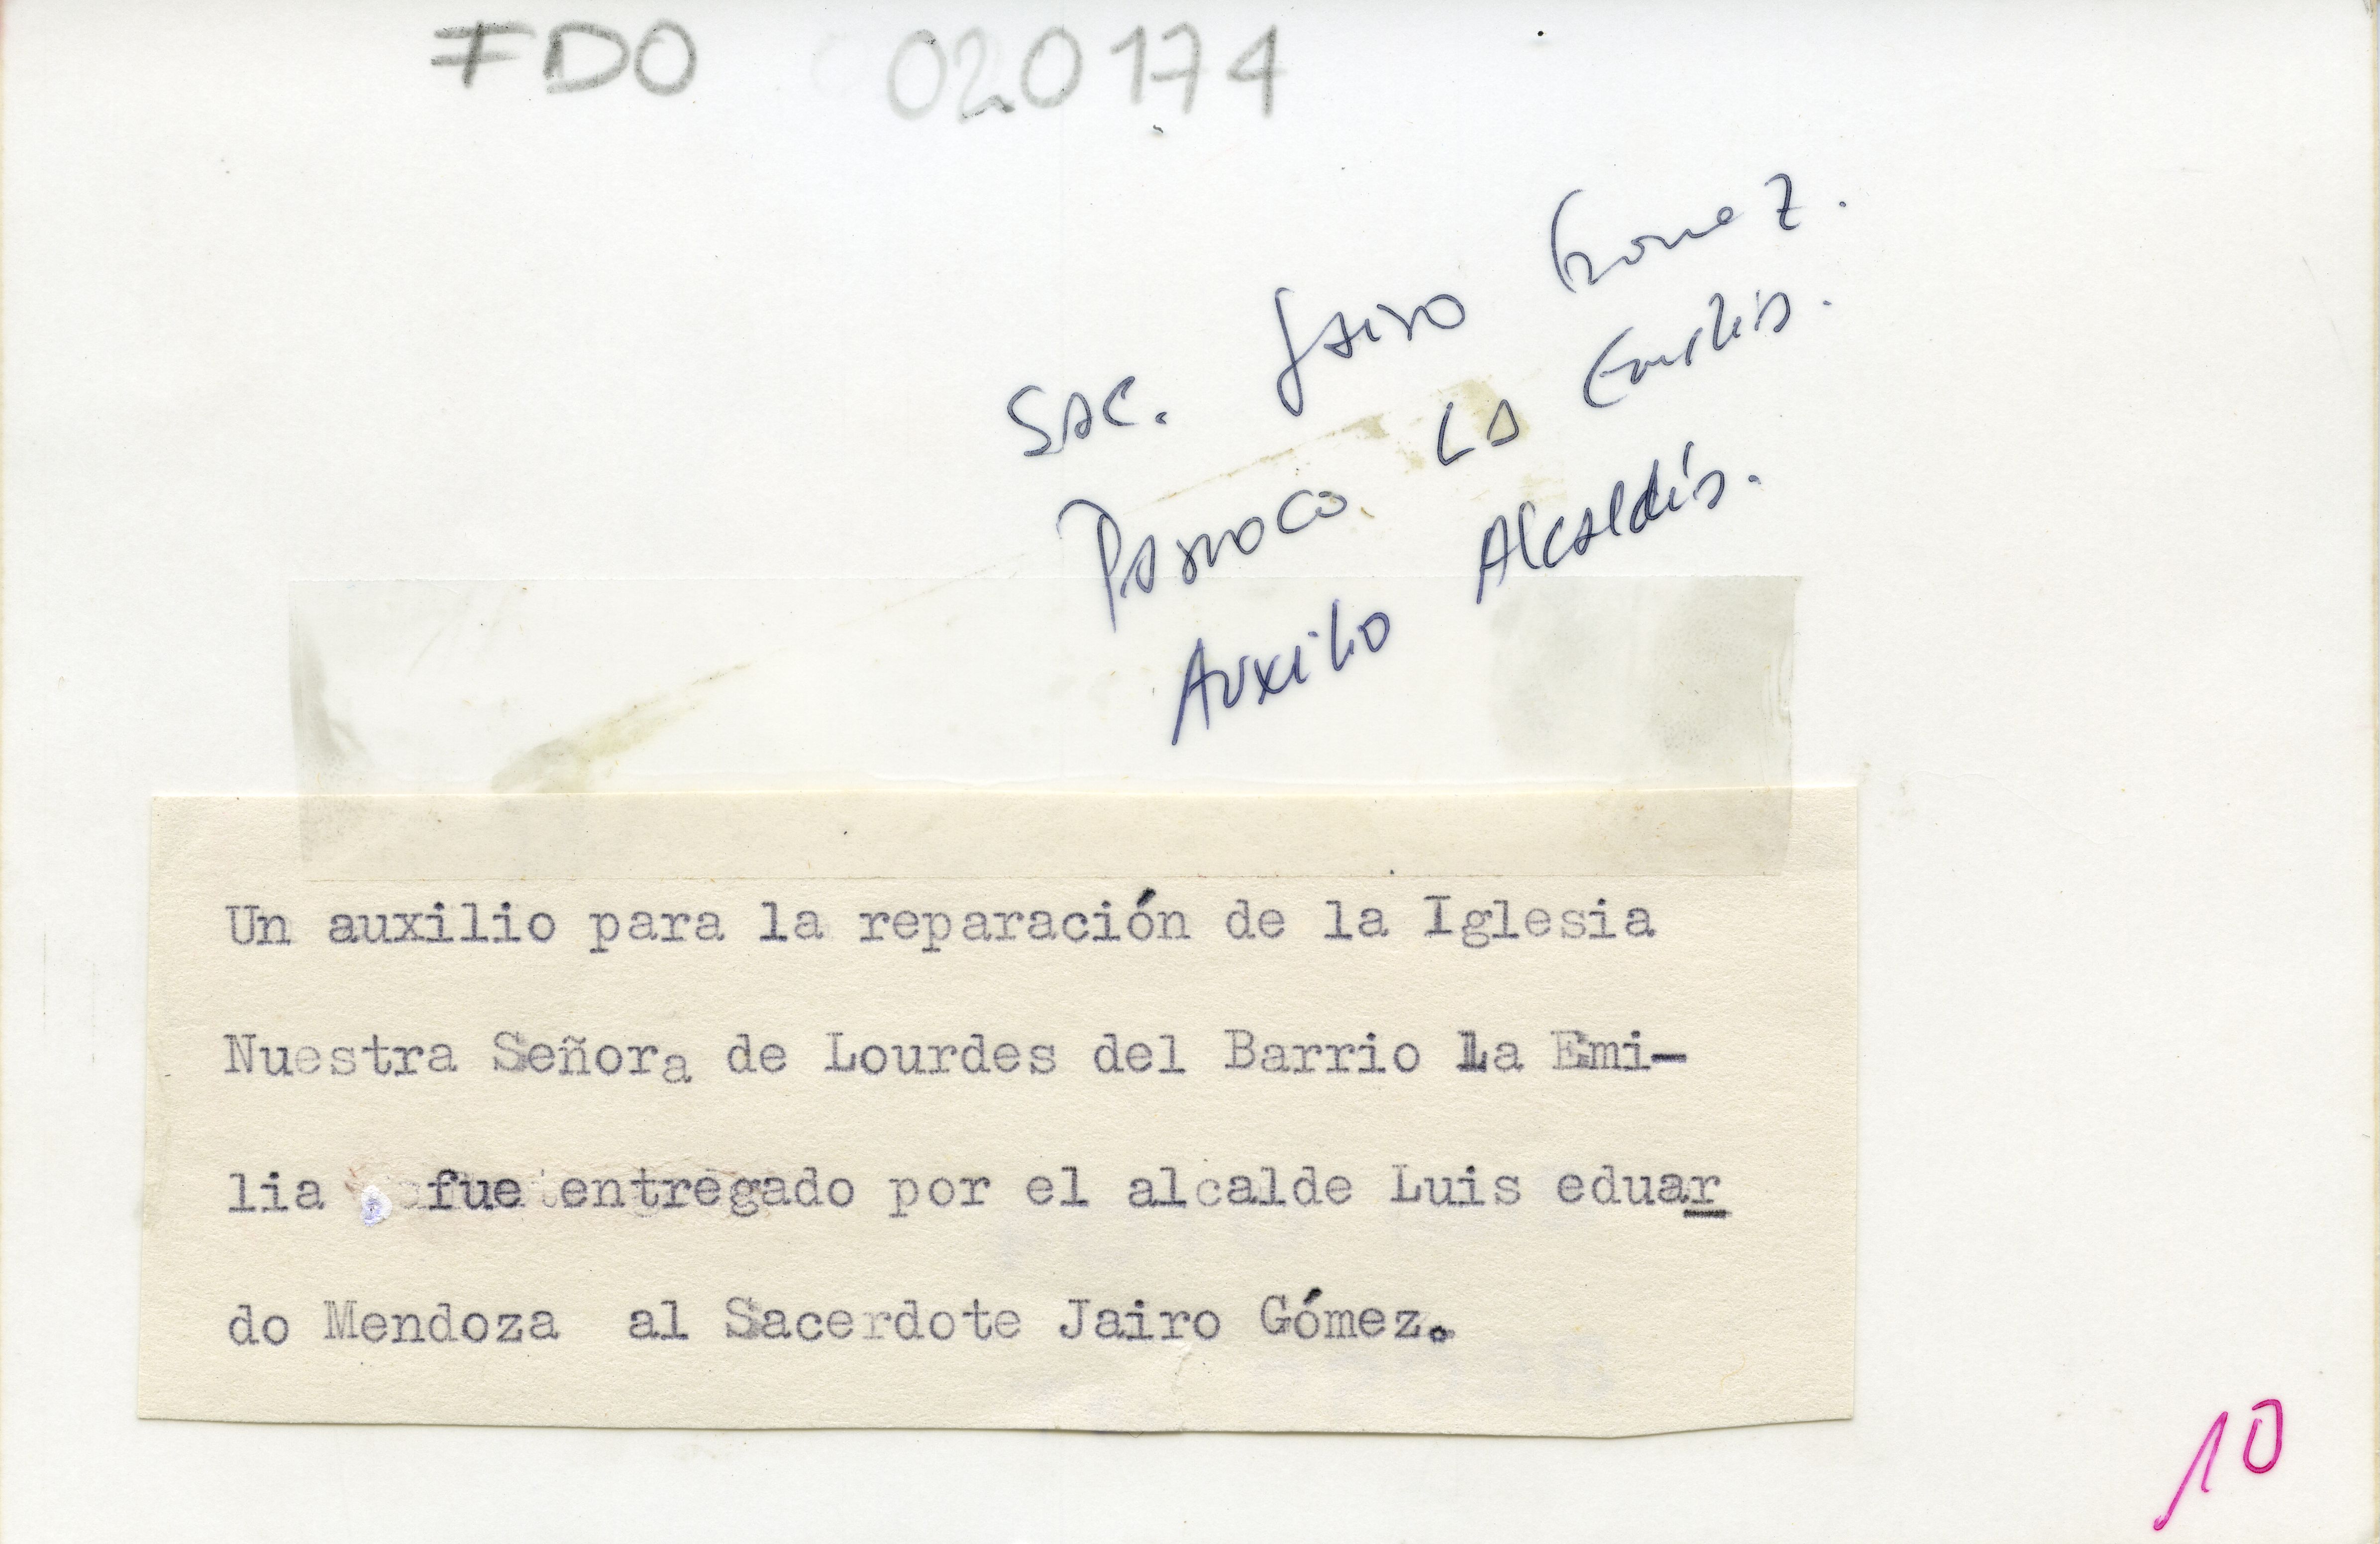 FDO 020174
Sac. Jairo Gomez.
Parroco La Emilia.
Auxilio Alcaldía.
Un auxilio para la reparación de la Iglesia
Nuestra Señora de Lourdes del Barrio la Emi-
lia fue entregado por el alcalde Luis eduar
do Mendoza al Sacerdote Jairo Gómez.
10